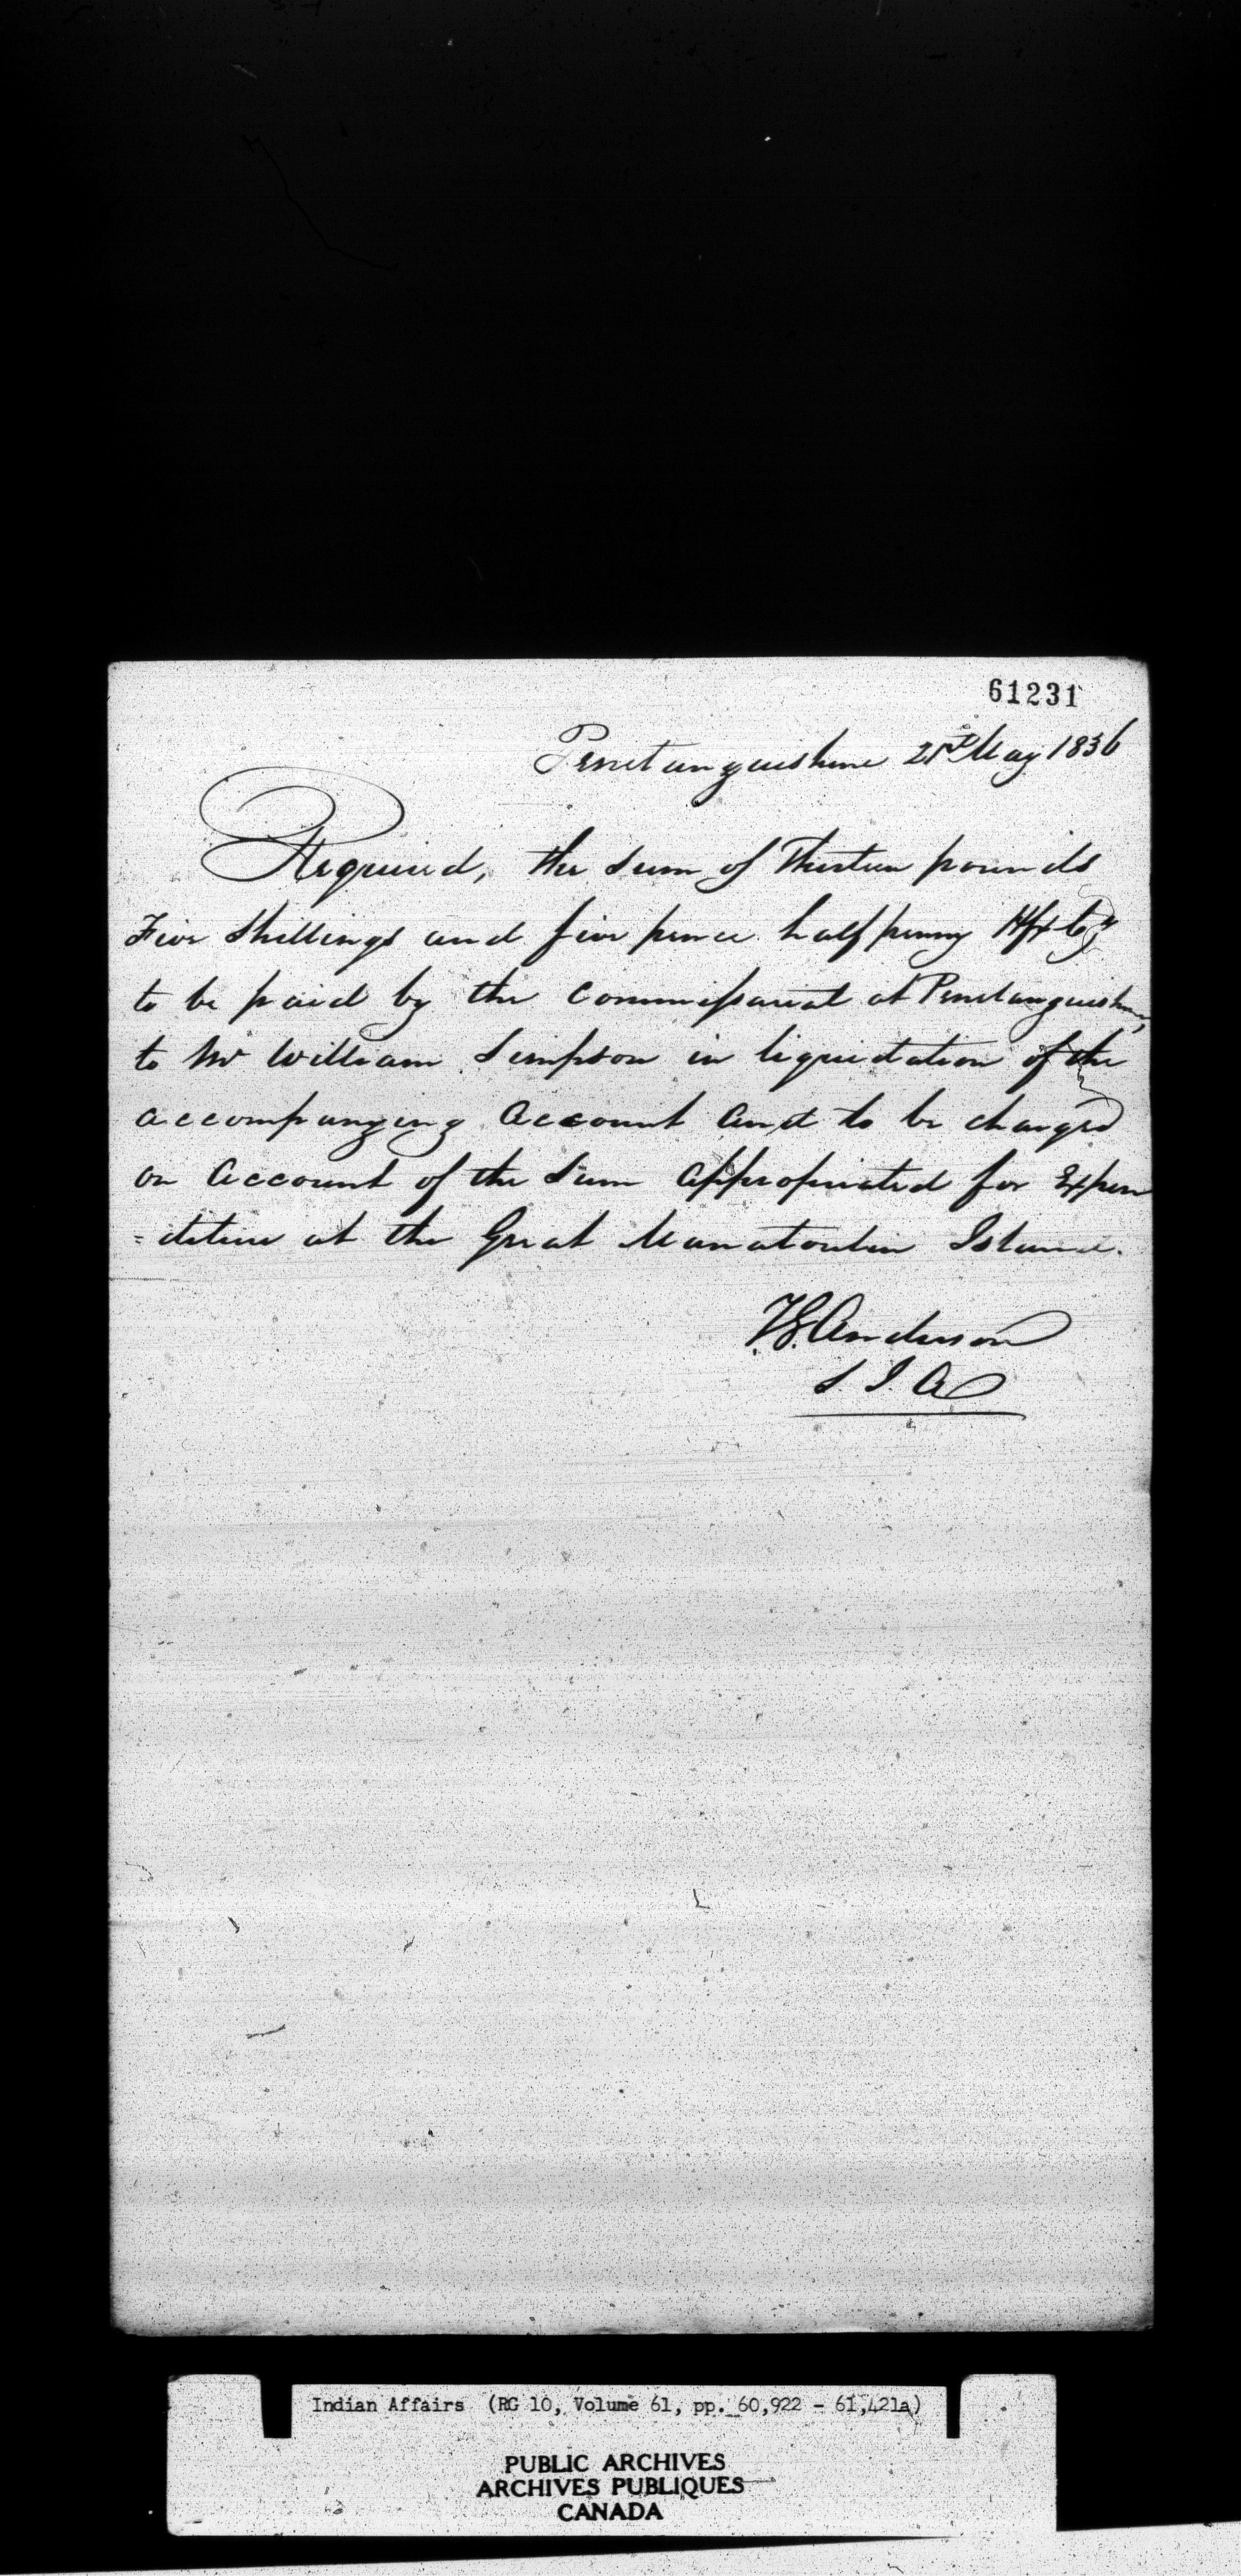 61231
Penetanguishine 21st May 1836
Required, the Sum of Thirteen pounds
Five Shillings and five pence half penny Hfx Cy
to be paid by the Commissariat at Penetanguishine,
to Mr William Simpson in liquidation of the
accompanying Account and to be charged
on Account of the Sum appropriated for Expen
=diture at the Great Manatoulin Island.
T.G. Anderson
S. I. A
Indian Affairs (RG 10, Volume 61, pp. 60,922 - 61,421a)
PUBLIC ARCHIVES
ARCHIVES PUBLIQUES
CANADA